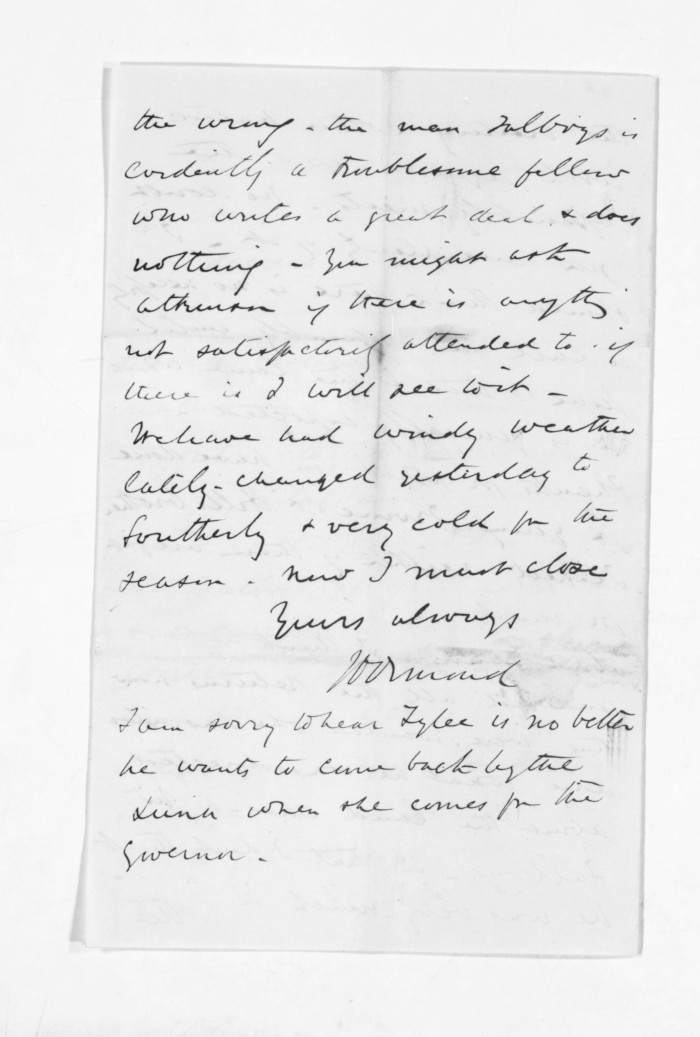 the wrong - the man Talboys is
evidently a troublesome fellow
who writes a great deal & does
nothing - You might ask
Atkinson if there is anything
not satisfactorily attended to - if
there is I will see to it -
We have had windy weather
lately - changed yesterday to
Southerly & very cold for the
season - Now I must close
Yours always
JD Ormond
I am sorry to hear Tylee is no better
he wants to come back by the
Luna when she comes for the
Governor -